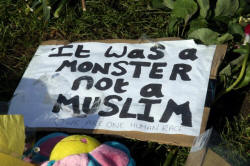 It was a
MONSTER
not a
MUSLIM
ONE HUMAN RACE